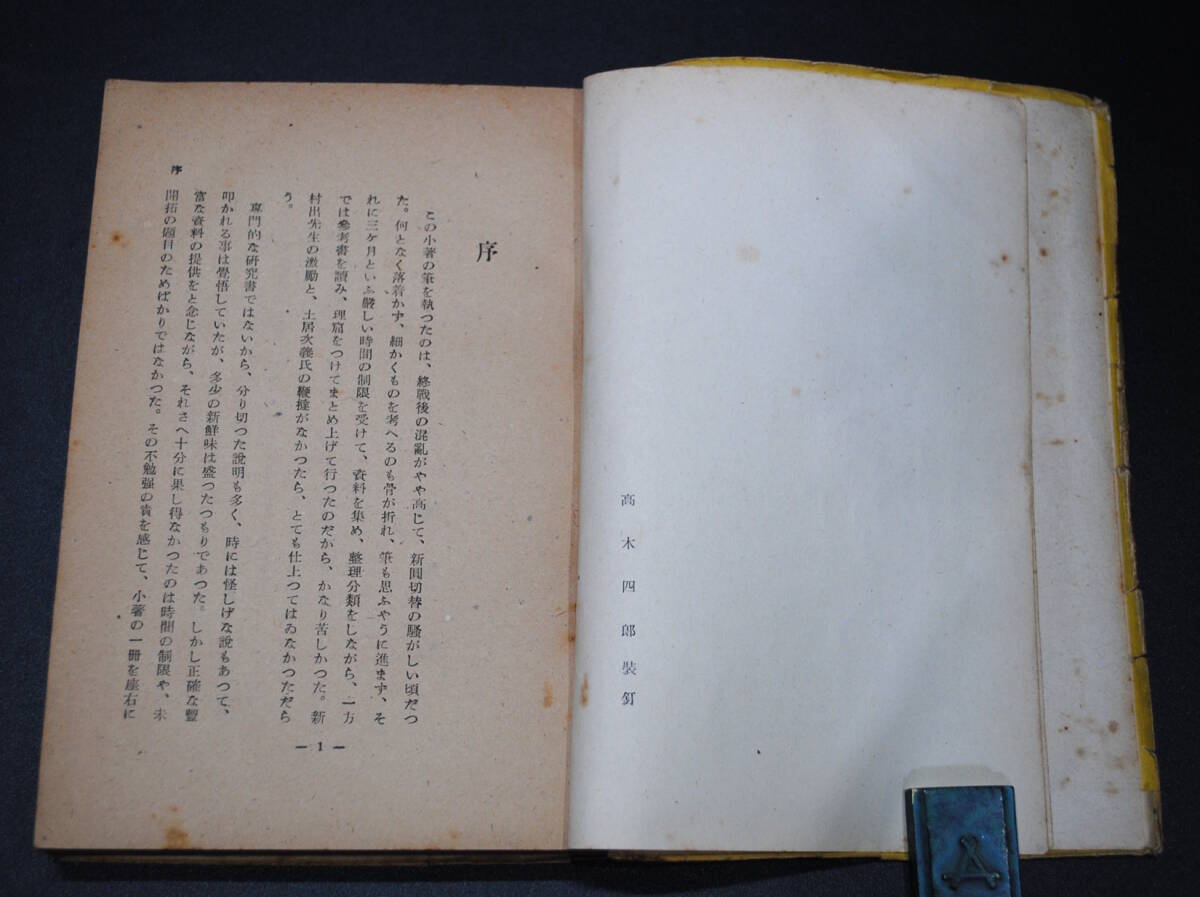 高木四郎裝釘
序
この小著の筆を執つたのは、終戰後の混亂がやや高じて、新圓切替の騷がしい頃だつ
た。何となく落着かず、細かくものを考へるのも骨が折れ、筆も思ふやうに進まず、そ
れに三ケ月といふ嚴しい時間の制限を受けて、資料を集め、整理分類をしながら、一方
では參考書を讀み、理窟をつけてまとめ上げて行つたのだから、かなり苦しかつた。新
村出先生の激勵と、土居次義氏の鞭撻がなかつたら、とても仕上つてはゐなかつただら
う。
專門的な研究書ではないから、分り切つた說明も多く、時には怪しげな說もあつて、
叩かれる事は覺悟していたが、多少の新鮮味は盛つたつもりであつた。しかし正確な豐
富な資料の提供をと念じながら、それさへ十分に果し得なかつたのは時間の制限や、未
開拓の題目のためばかりではなかつた。その不勉强の責を感じて、小著の一冊を座右に
序
— 1 —